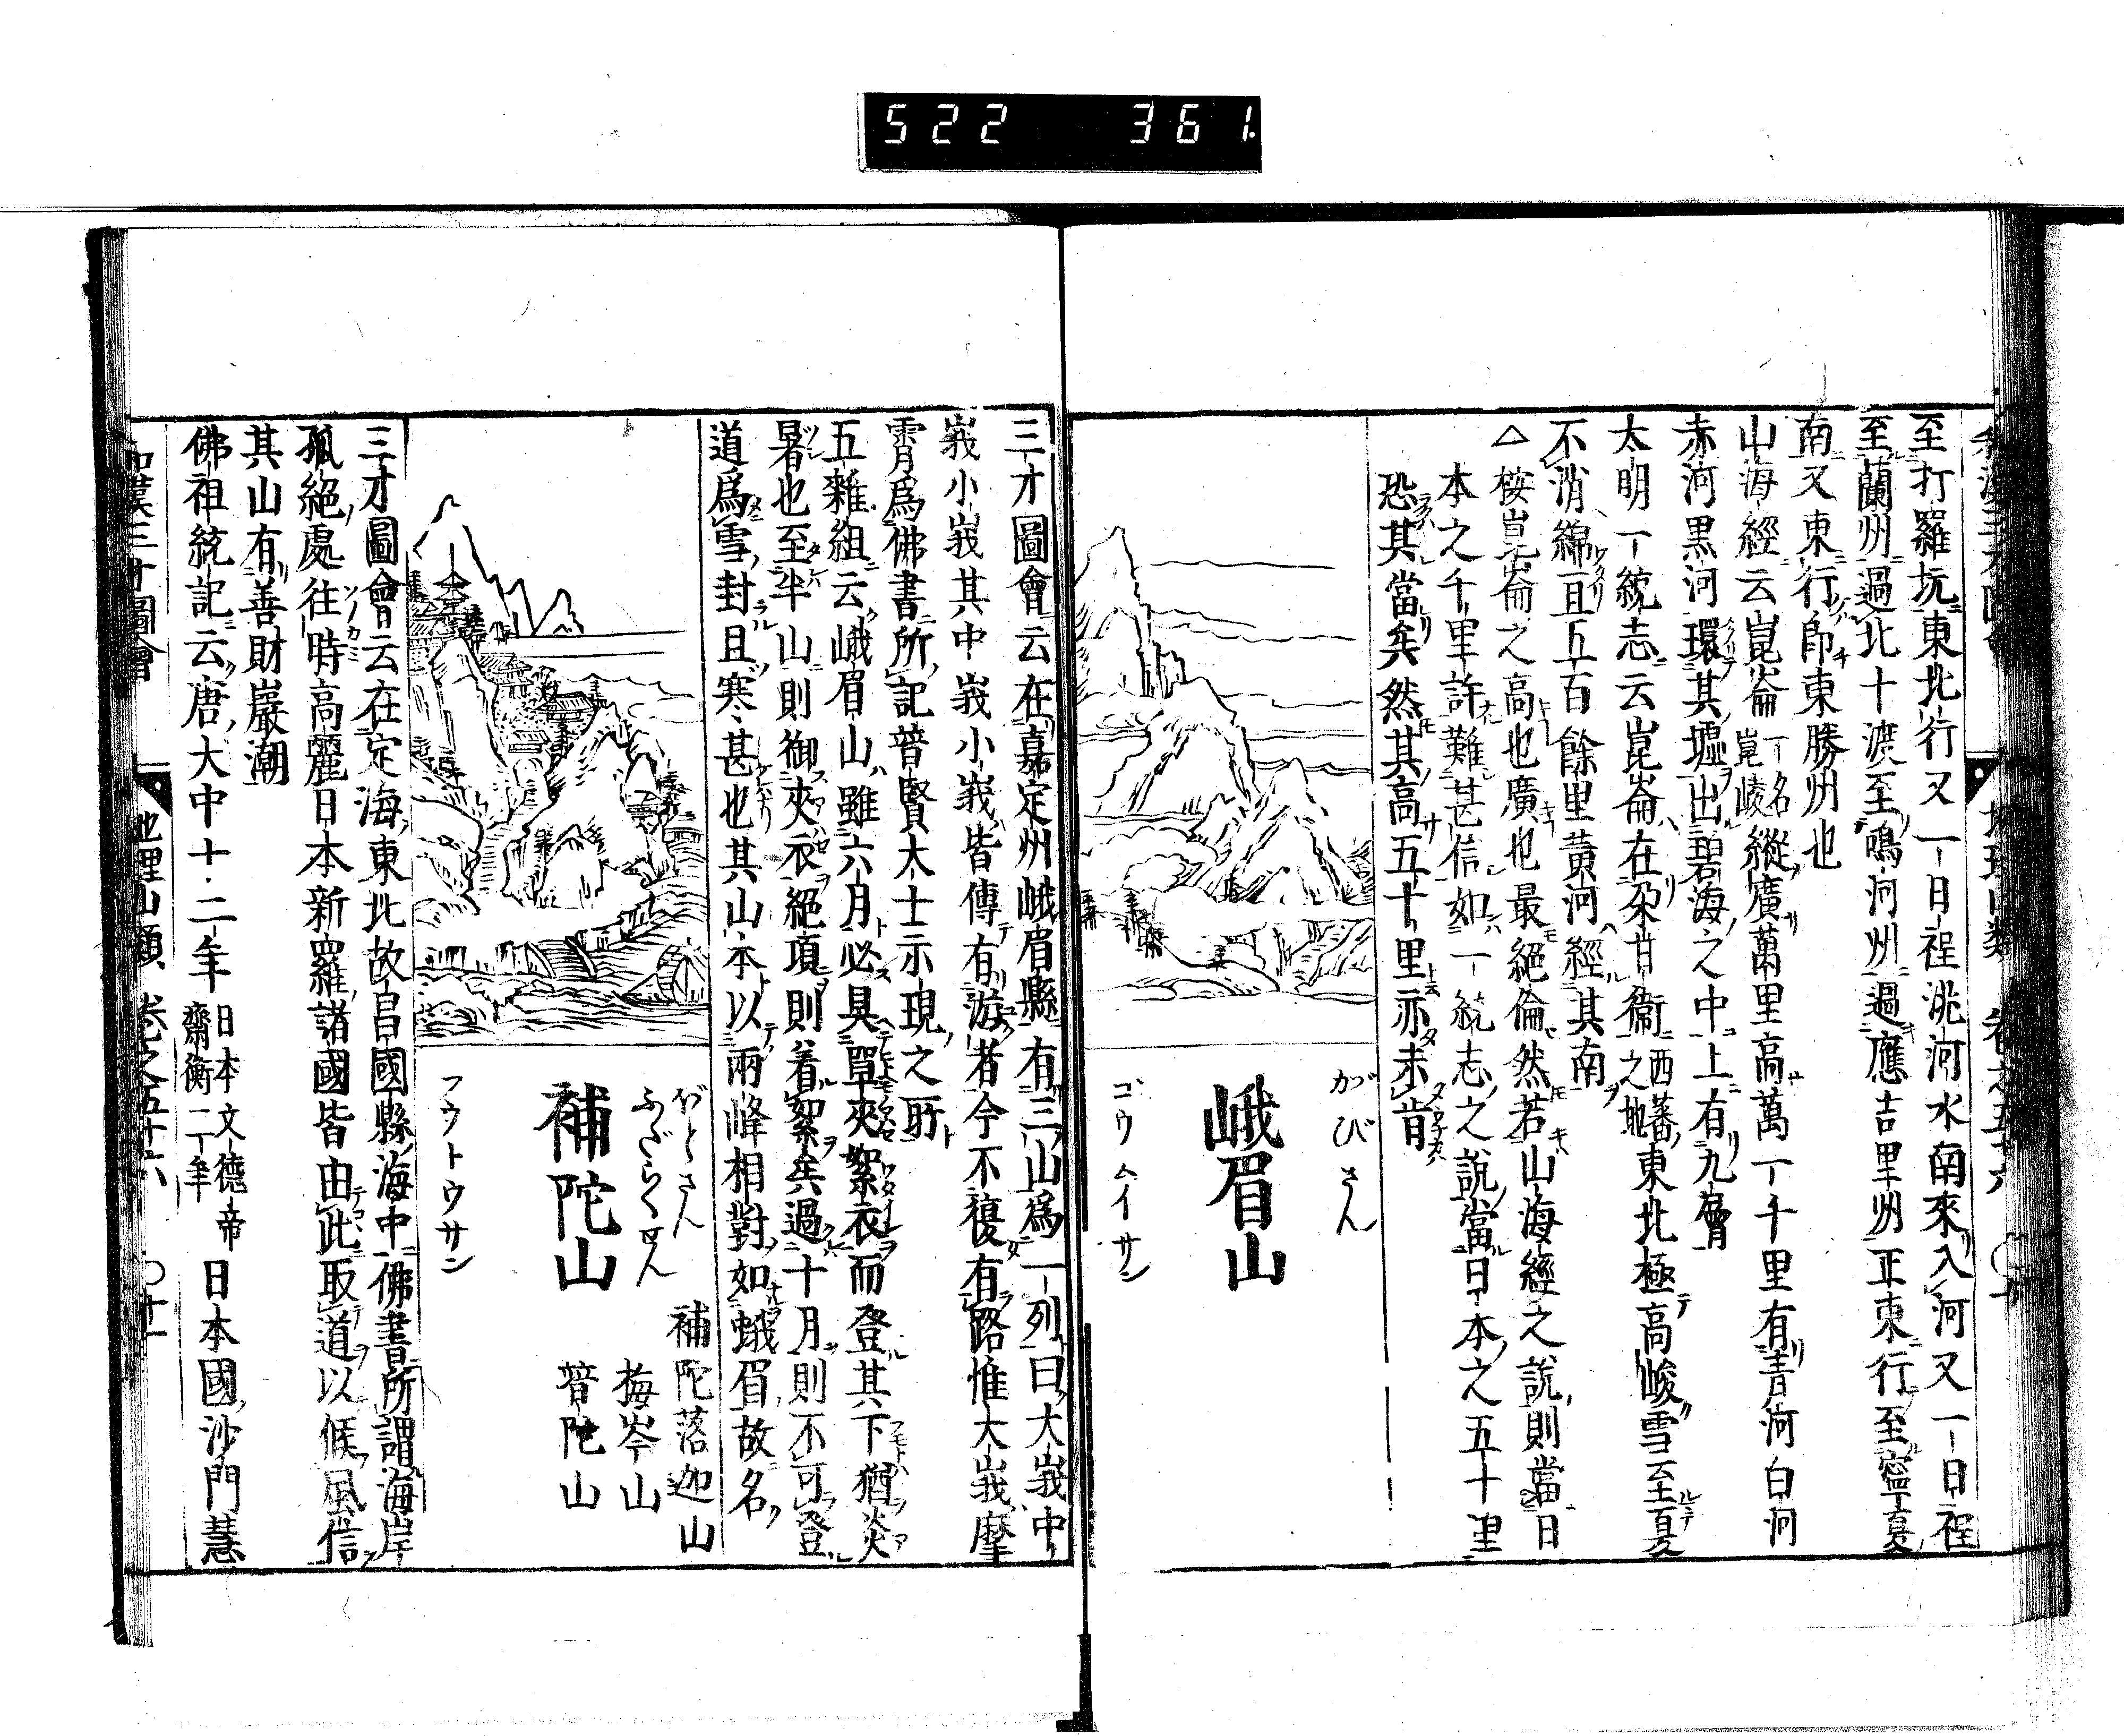 522 361.
至打羅坑東北行又一日程洮河水南來入河又一日程
至蘭州過北十渡至鳴河州過應吉里州正東行至寧夏
南又東行即東勝州也
山海經云崑崙一名崑崚縱廣萬里高萬一千里有青河白河
赤河黑河環其墟出碧海之中上有九層
太明一統志云崑崙在朶甘衞西蕃之地東北極高峻雪至夏
不消綿亘五百餘里黃河經其南
△桉崑崙之高也廣也最絕倫然若山海經之說則當日
本之千里許難甚信如一統志之說當日本之五十里
恐其當矣然其高五十里亦未肯
がびさん
峨眉山
ゴウムイサン
三才圖會云在嘉定州峨眉縣有三山爲一列曰大峩中
峩小峩其中峩小峩皆傳有游者今不複有路惟大峩摩
霄爲佛書所記普賢大士示現之所
五雜組云峨眉山雖六月必具單夾絮衣而登其下猶炎
暑也至半山則御夾衣絕頂則着絮矣過十月則不可登
道爲雪封且寒甚也其山本以兩峰相對如蛾眉故名
補陀落迦山
梅岑山
普陀山
ふだらくせん
補陀山
フウトウサン
三才圖會云在定海東北故昌國縣海中佛書所謂海岸
孤絕處往時高麗日本新羅諸國皆由此取道以候風信
其山有善財巖潮
佛祖統記云唐大中十二年日本文德帝齋衡二年日本國沙門慧
和漢三才圖會 地理山類 卷之五十六 〇十一